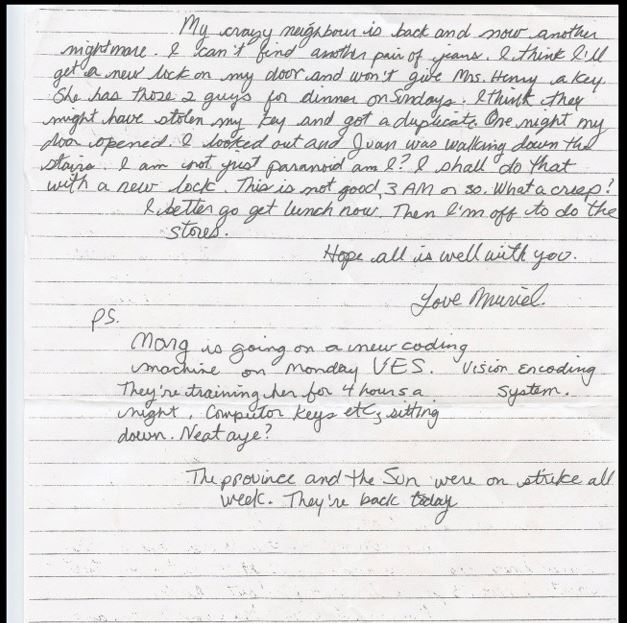 My crazy neighbour is back and now another
nightmare. I can't find another pair of jeans. I think I'll
get a new lock on my door and won't give Mrs. Henry a key.
She has those 2 guys for dinner on Sundays. I think they
might have stolen my key and got a duplicate. One night my
door opened. I looked out and Juan was walking down the
stairs. I am not just paranoid am I? I shall do that
with a new lock. This is not good, 3 AM or so. What a creep!
I better go get lunch now. Then I'm off to do the
stores.
Hope all is well with you.
Love Muriel.
PS.
Marg is going on a new coding
machine on Monday VES. Vision Encoding
They're training her for 4 hours a System.
night. Computor keys etc, sitting
down. Neat aye?
The province and the Sun were on strike all
week. They're back today